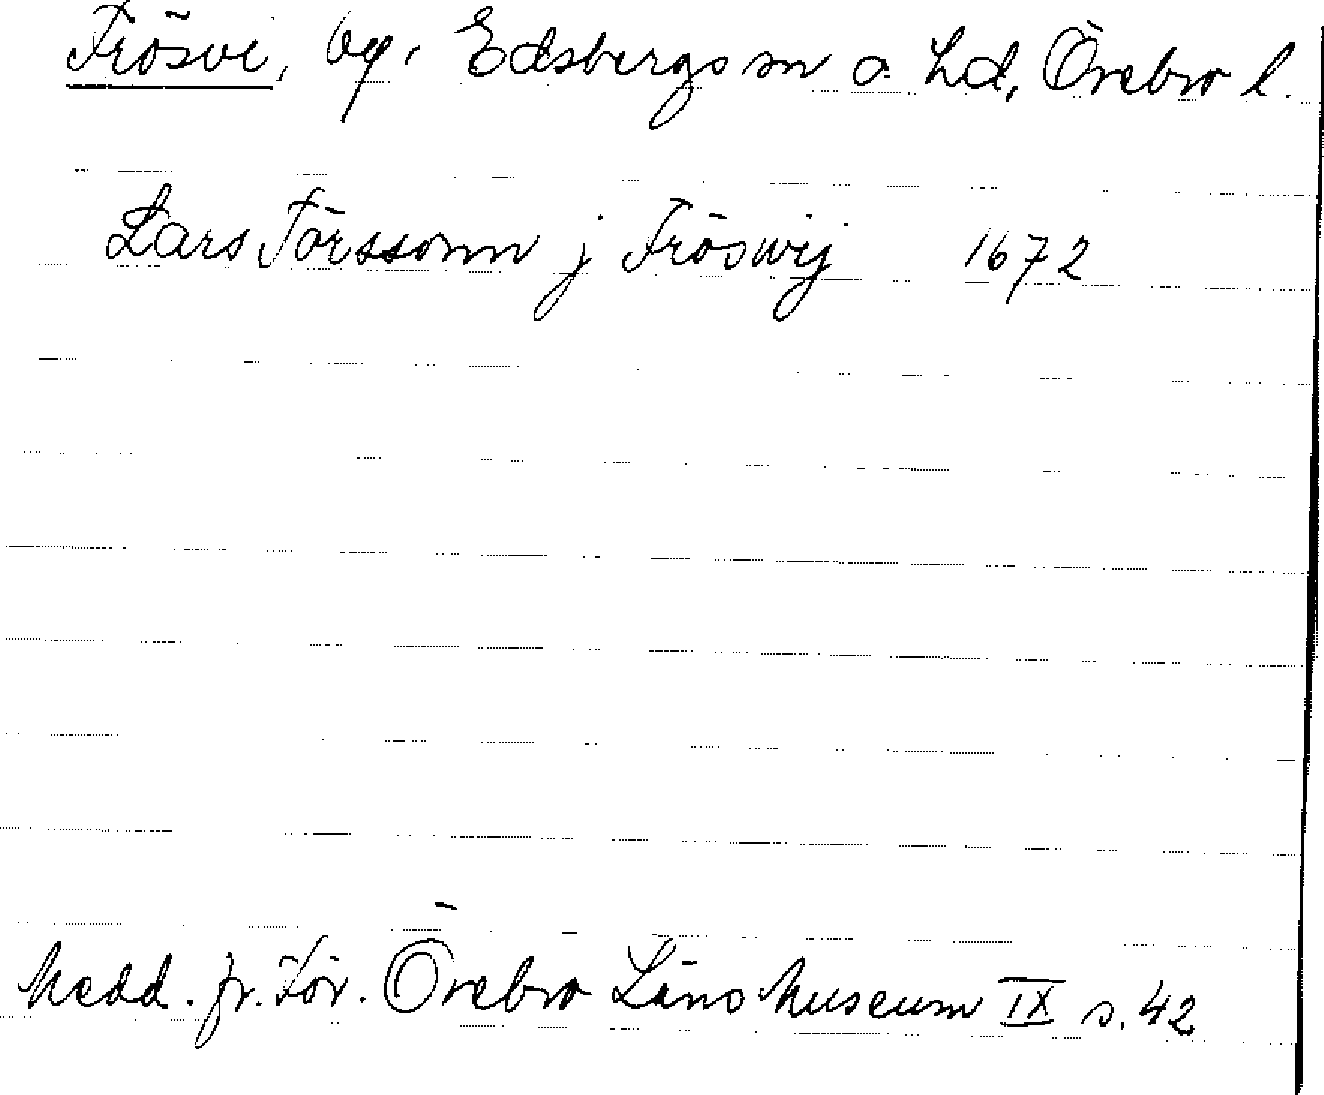 Frösvi, by, Edsbergs sn o. hd, Örebro l.
Lars Törssonn j Fröswij 1672
Medd. fr. För. Örebro Läns Museum IX s. 42